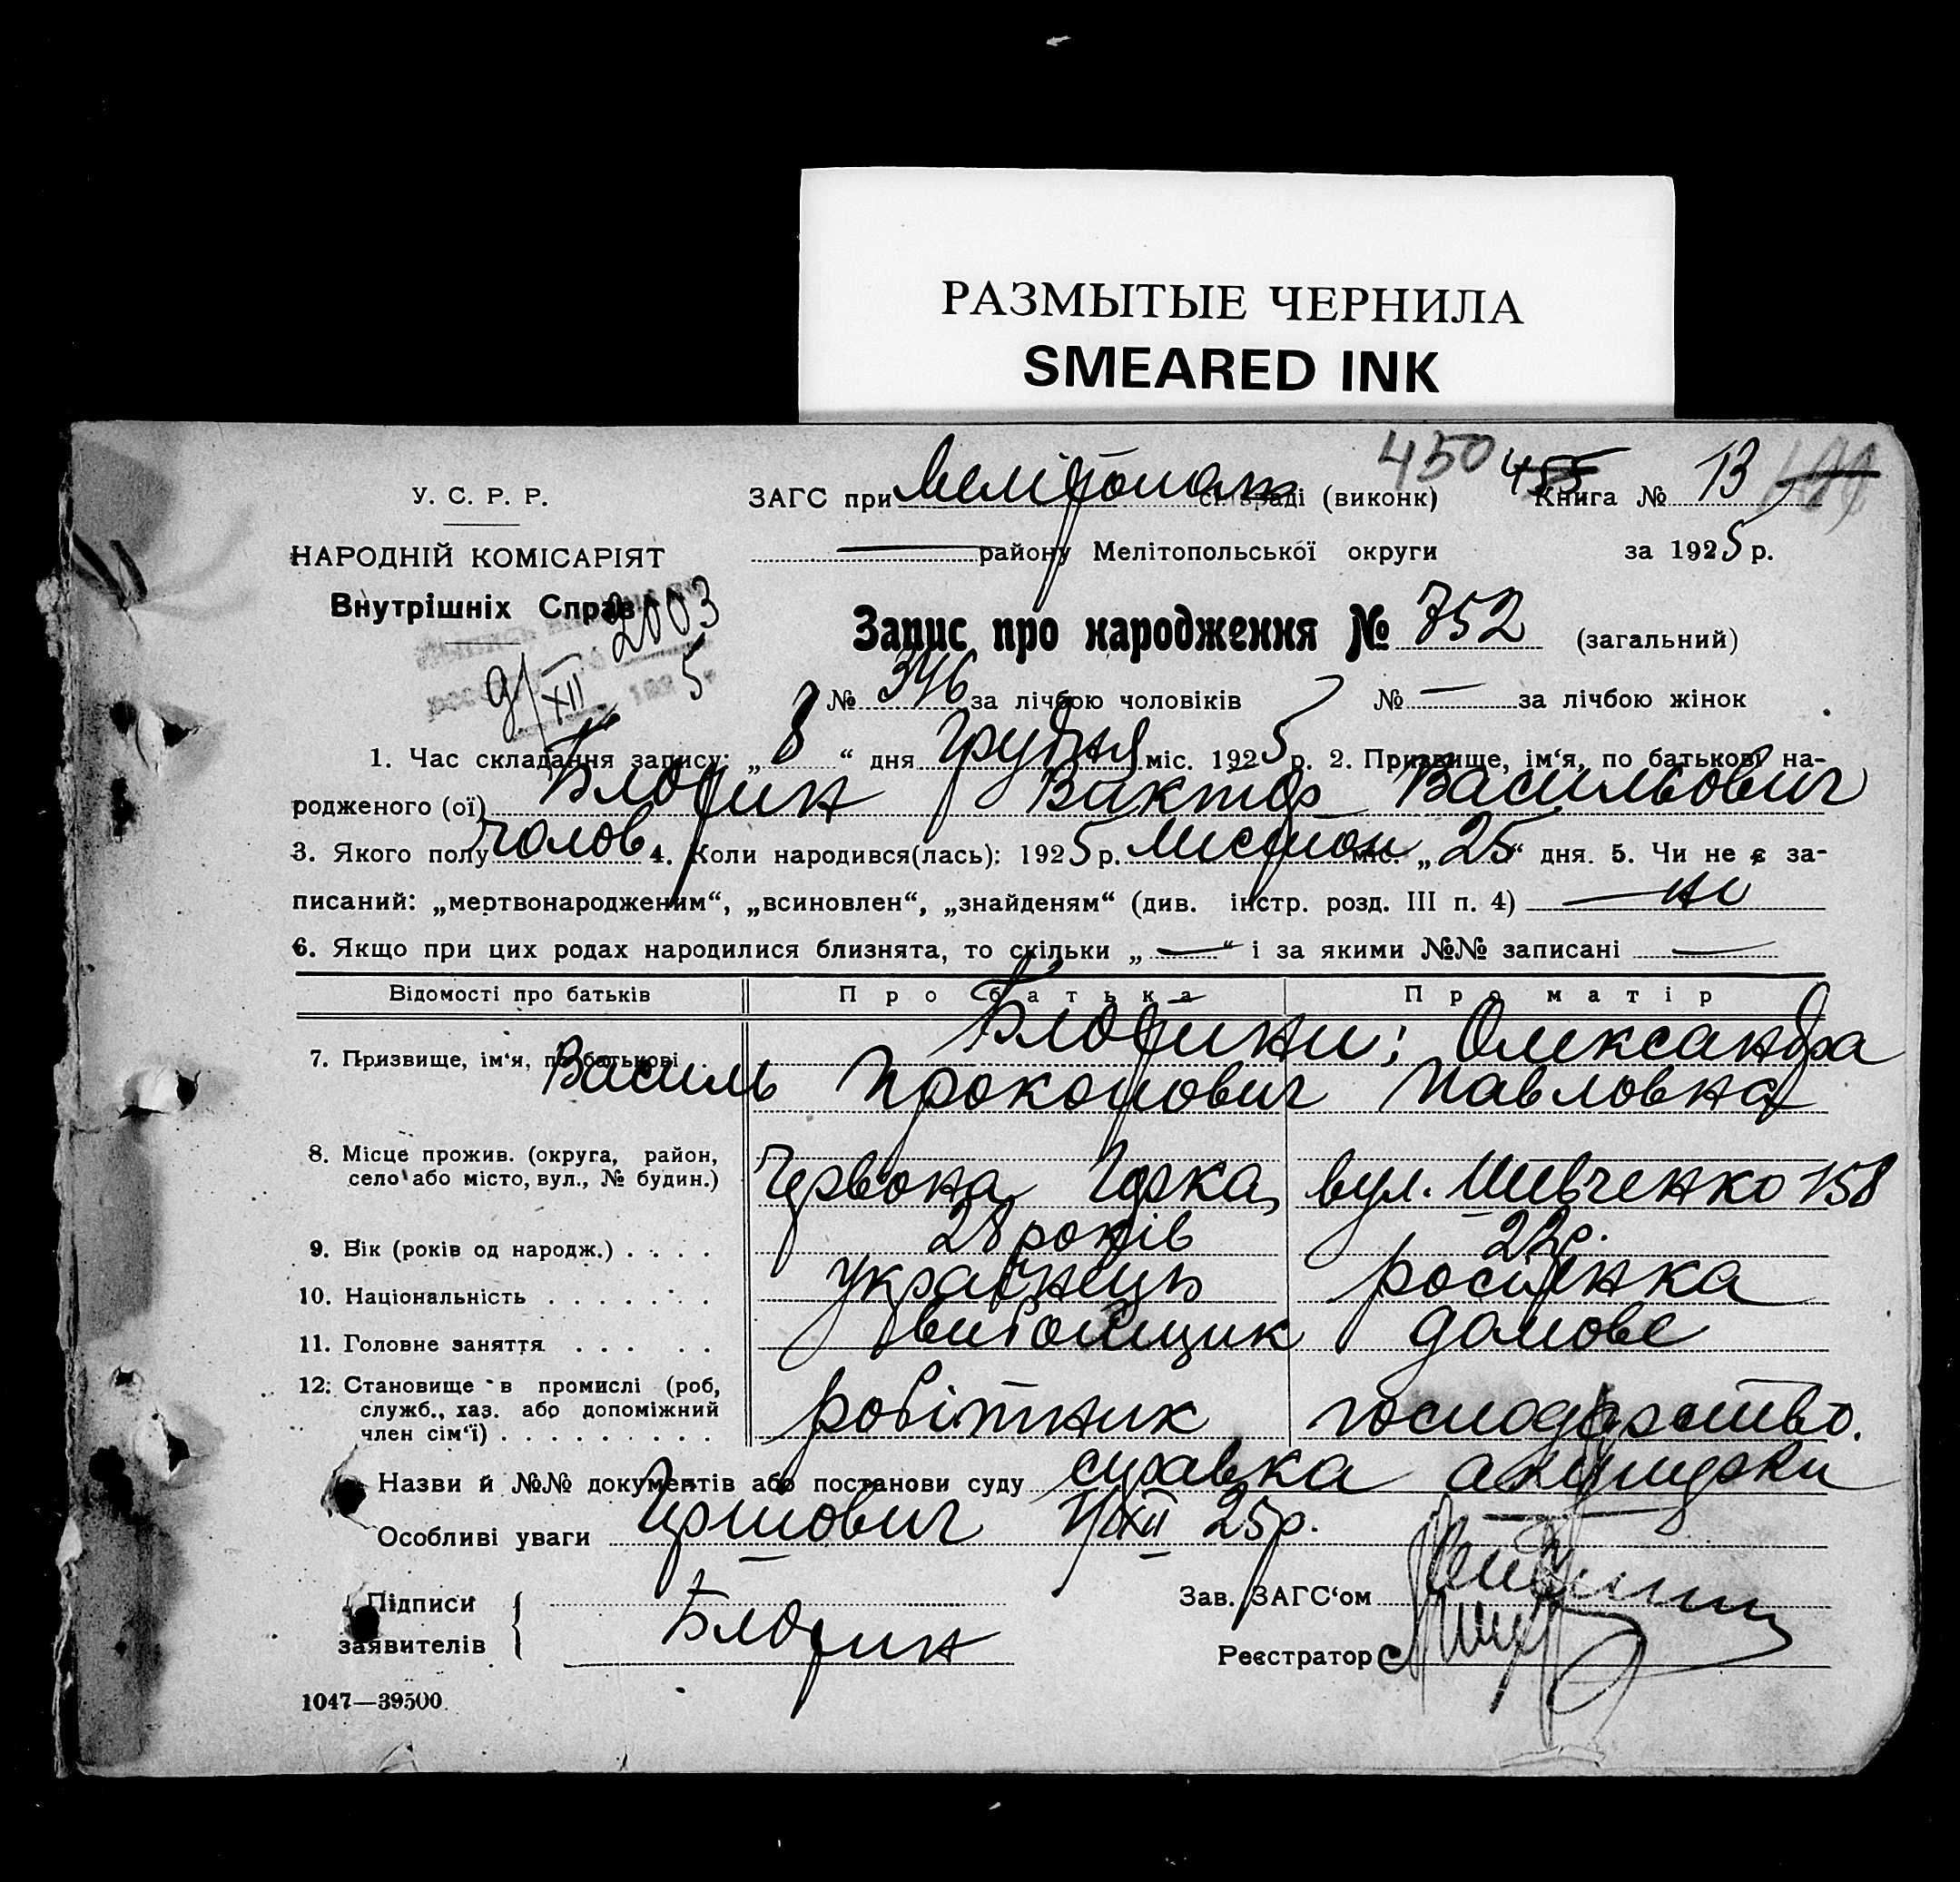 РАЗМЫТЫЕ ЧЕРНИЛА
SMEARED INK
450 455
У. С. Р. Р.
ЗАГС при Мелітопольск сільраді (виконк) Книга № 13
НАРОДНІЙ КОМІСАРІЯТ
району Мелітопольської округи за 1925 р.
Внутрішніх Справ
2003
9/XII 1925
Запис про народження № 752 (загальний)
№ 346 за лічбою чоловіків № — за лічбою жінок
1. Час складання запису: „ 8 “ дня грудня міс. 1925 р. 2. Призвище, ім‘я, по батькові на-
родженого (ої) Блофин Виктор Васильович
3. Якого полу чолов. 4. Коли народився(лась): 1925 р. листопон міс. „ 25 “ дня. 5. Чи не є за-
писаний: „мертвонародженим“, „всиновлен“, „знайденям“ (див. інстр. розд. III п. 4) — ні
6. Якщо при цих родах народилися близнята, то скільки „ — “ і за якими №№ записані —
Відомості про батьків Про батька Про матір
7. Призвище, ім‘я, по батькові Блофини: Олександра
Василь Прокопович Павловна
8. Місце прожив. (округа, район,
село або місто, вул., № будин.) Червона Горка, вул. Шевченко 158
9. Вік (років од народж.) . . . . 28 років 22 р.
10. Національність . . . . . . . українець росіянка
11. Головне заняття . . . . . вибойщик домове
12. Становище в промислі (роб,
служб., хаз. або допоміжний
член сім‘ї) . . . . . . . . . робітник господарство.
Назви й №№ документів або постанови суду справка акушерки
Особливі уваги XII 25 р.
Підписи
заявителів Блофин
Зав. ЗАГС‘ом
Реєстратор
1047—39500